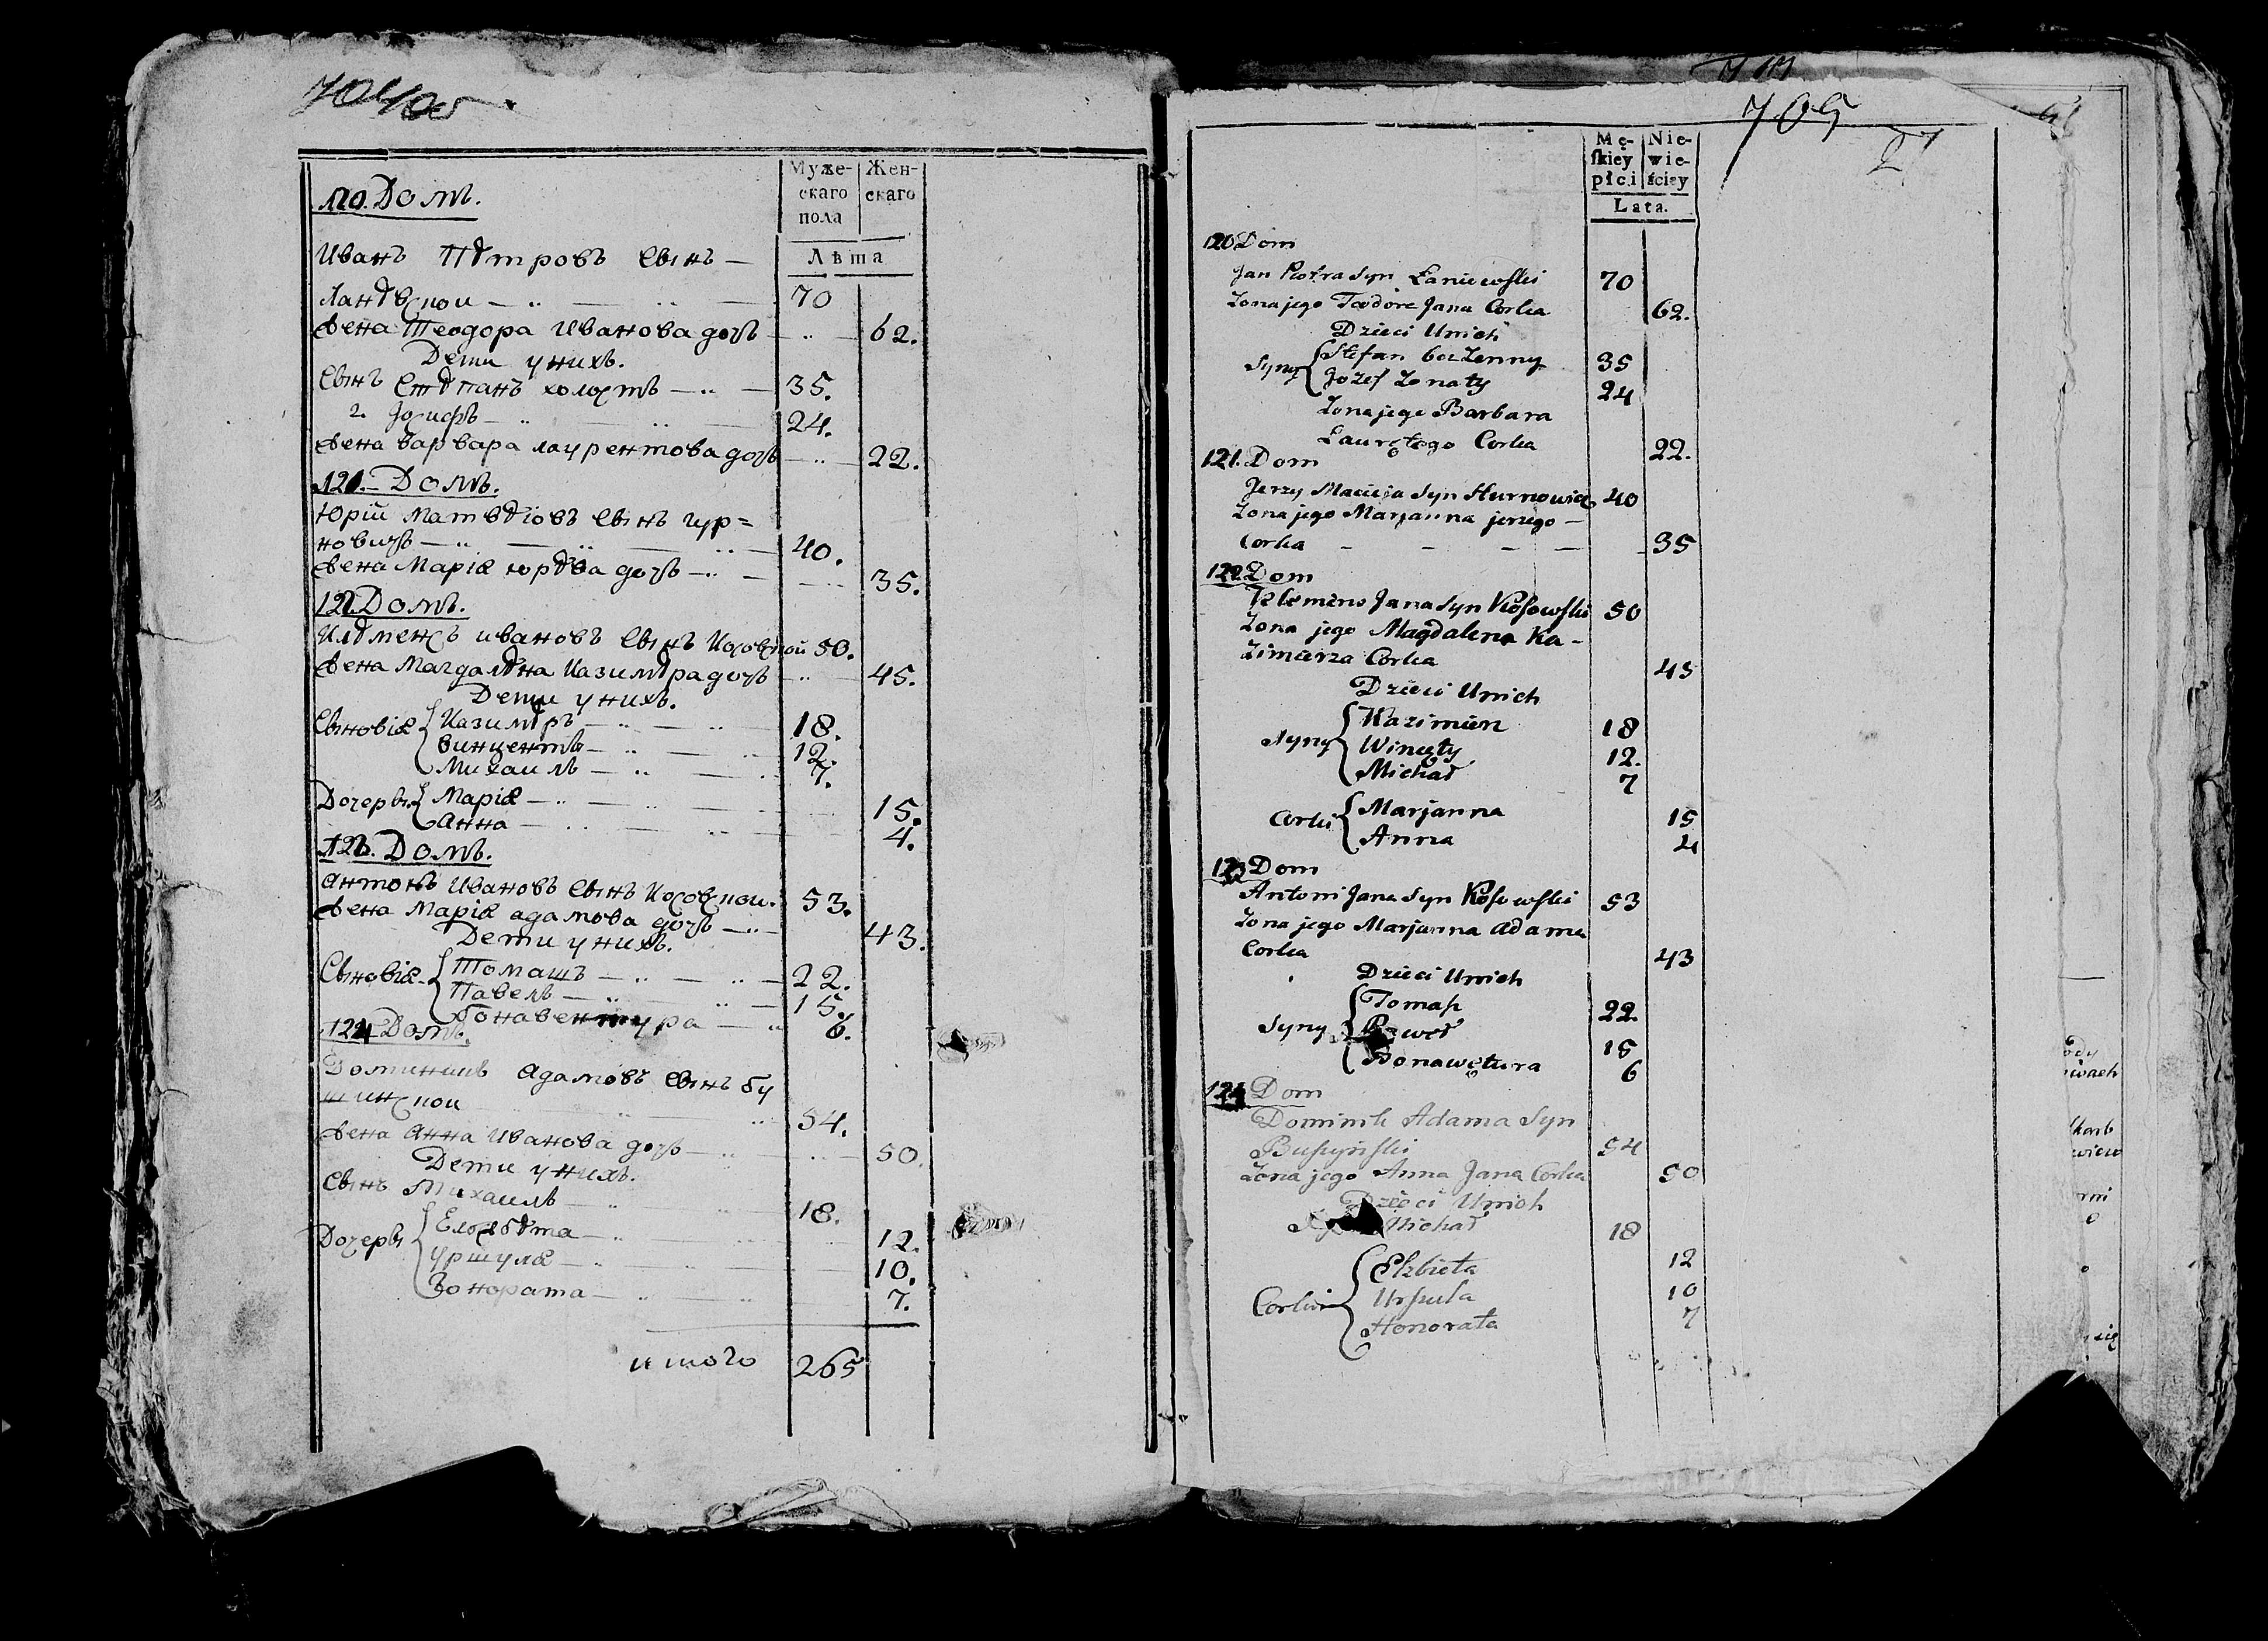 704 об
120. Домъ.
Муже-
скаго
пола
Жен-
скаго
Лѣта
Иванъ Петровъ сынъ —
Ланевскои — „ — „ — 70
жена Теодора Иванова дочь — „ — 62.
Дети у нихъ.
Сынъ Степанъ холостъ — „ — 35.
2. Іосифъ — „ — „ — 24.
жена варвара лаурентова дочь — „ — 22.
121. Домъ.
Юрій Матвеіовъ сынъ гур=
новичъ — „ — „ — „ — 40.
жена Марія юрева дочь — „ — „ — 35.
122 Домъ.
Клеменсъ ивановъ сынъ Косовской 50.
жена Магдалена Казимера дочь — „ — 45.
Дети у нихъ.
Сыновія { Казимеръ — „ — „ — 18.
винцентъ — „ — „ 12.
Михаилъ — „ — „ 7.
Дочеры { Марія — „ — „ — 15.
Анна — „ — „ — 4.
123. Домъ.
Антонъ Ивановъ сынъ Косовскои. 53.
жена Марія адамова дочь — „ — 43.
Дети у нихъ.
Сыновія { Томашъ — „ — „ — 22.
Павелъ — „ — „ — 15.
Бонавентура — „ 6.
124 Домъ.
Доминикъ Адамовъ сынъ бу
шинскои „ „ 54.
жена Анна Иванова дочь — „ — „ — 50.
Дети у нихъ.
Сынъ Михаилъ — „ — 18.
Дочеры { Елсбета — „ — „ — 12.
Уршуля — „ — „ — 10.
Гонората — „ — „ — 7.
итого 265
705
27
Mę-
ſkiey
płci
Nie-
wie-
ściey
Lata.
120 Dom
Jan Piotra Syn Łaniewſki 70
Zona jego Teodora Jana Corka 62.
Dzieci Unich
Syny { Stefan bezZenny 35
Jozef Zonaty 24
Zona jego Barbara
Laurętego Corka 22.
121. Dom
Jerzy Macieja Syn Hurnowicz 40
Zona jego Marjanna jerzego —
Corka — — — — 35
122 Dom
Klemens Jana Syn Koſowſki 50
Zona jego Magdalena Ka-
zimierza Corka 45
Dzieci Unich
Syny { Kazimierz 18
Winęty 12.
Michał 7
Corki { Marjanna 15
Anna 4
123 Dom
Antoni Jana Syn Koſowſki 53
Zona jego Marjanna Adama
Corka 43
Dzieci Unich
Syny { Tomaſz 22.
Paweł 15
Bonawętura 6
124 Dom
Dominik Adama Syn
Buſzyńſki 54
Zona jego Anna Jana Corka 50
Dzieci Unich
Michał 18
Corki { Elzbieta 12
Urſzula 10
Honorata 7